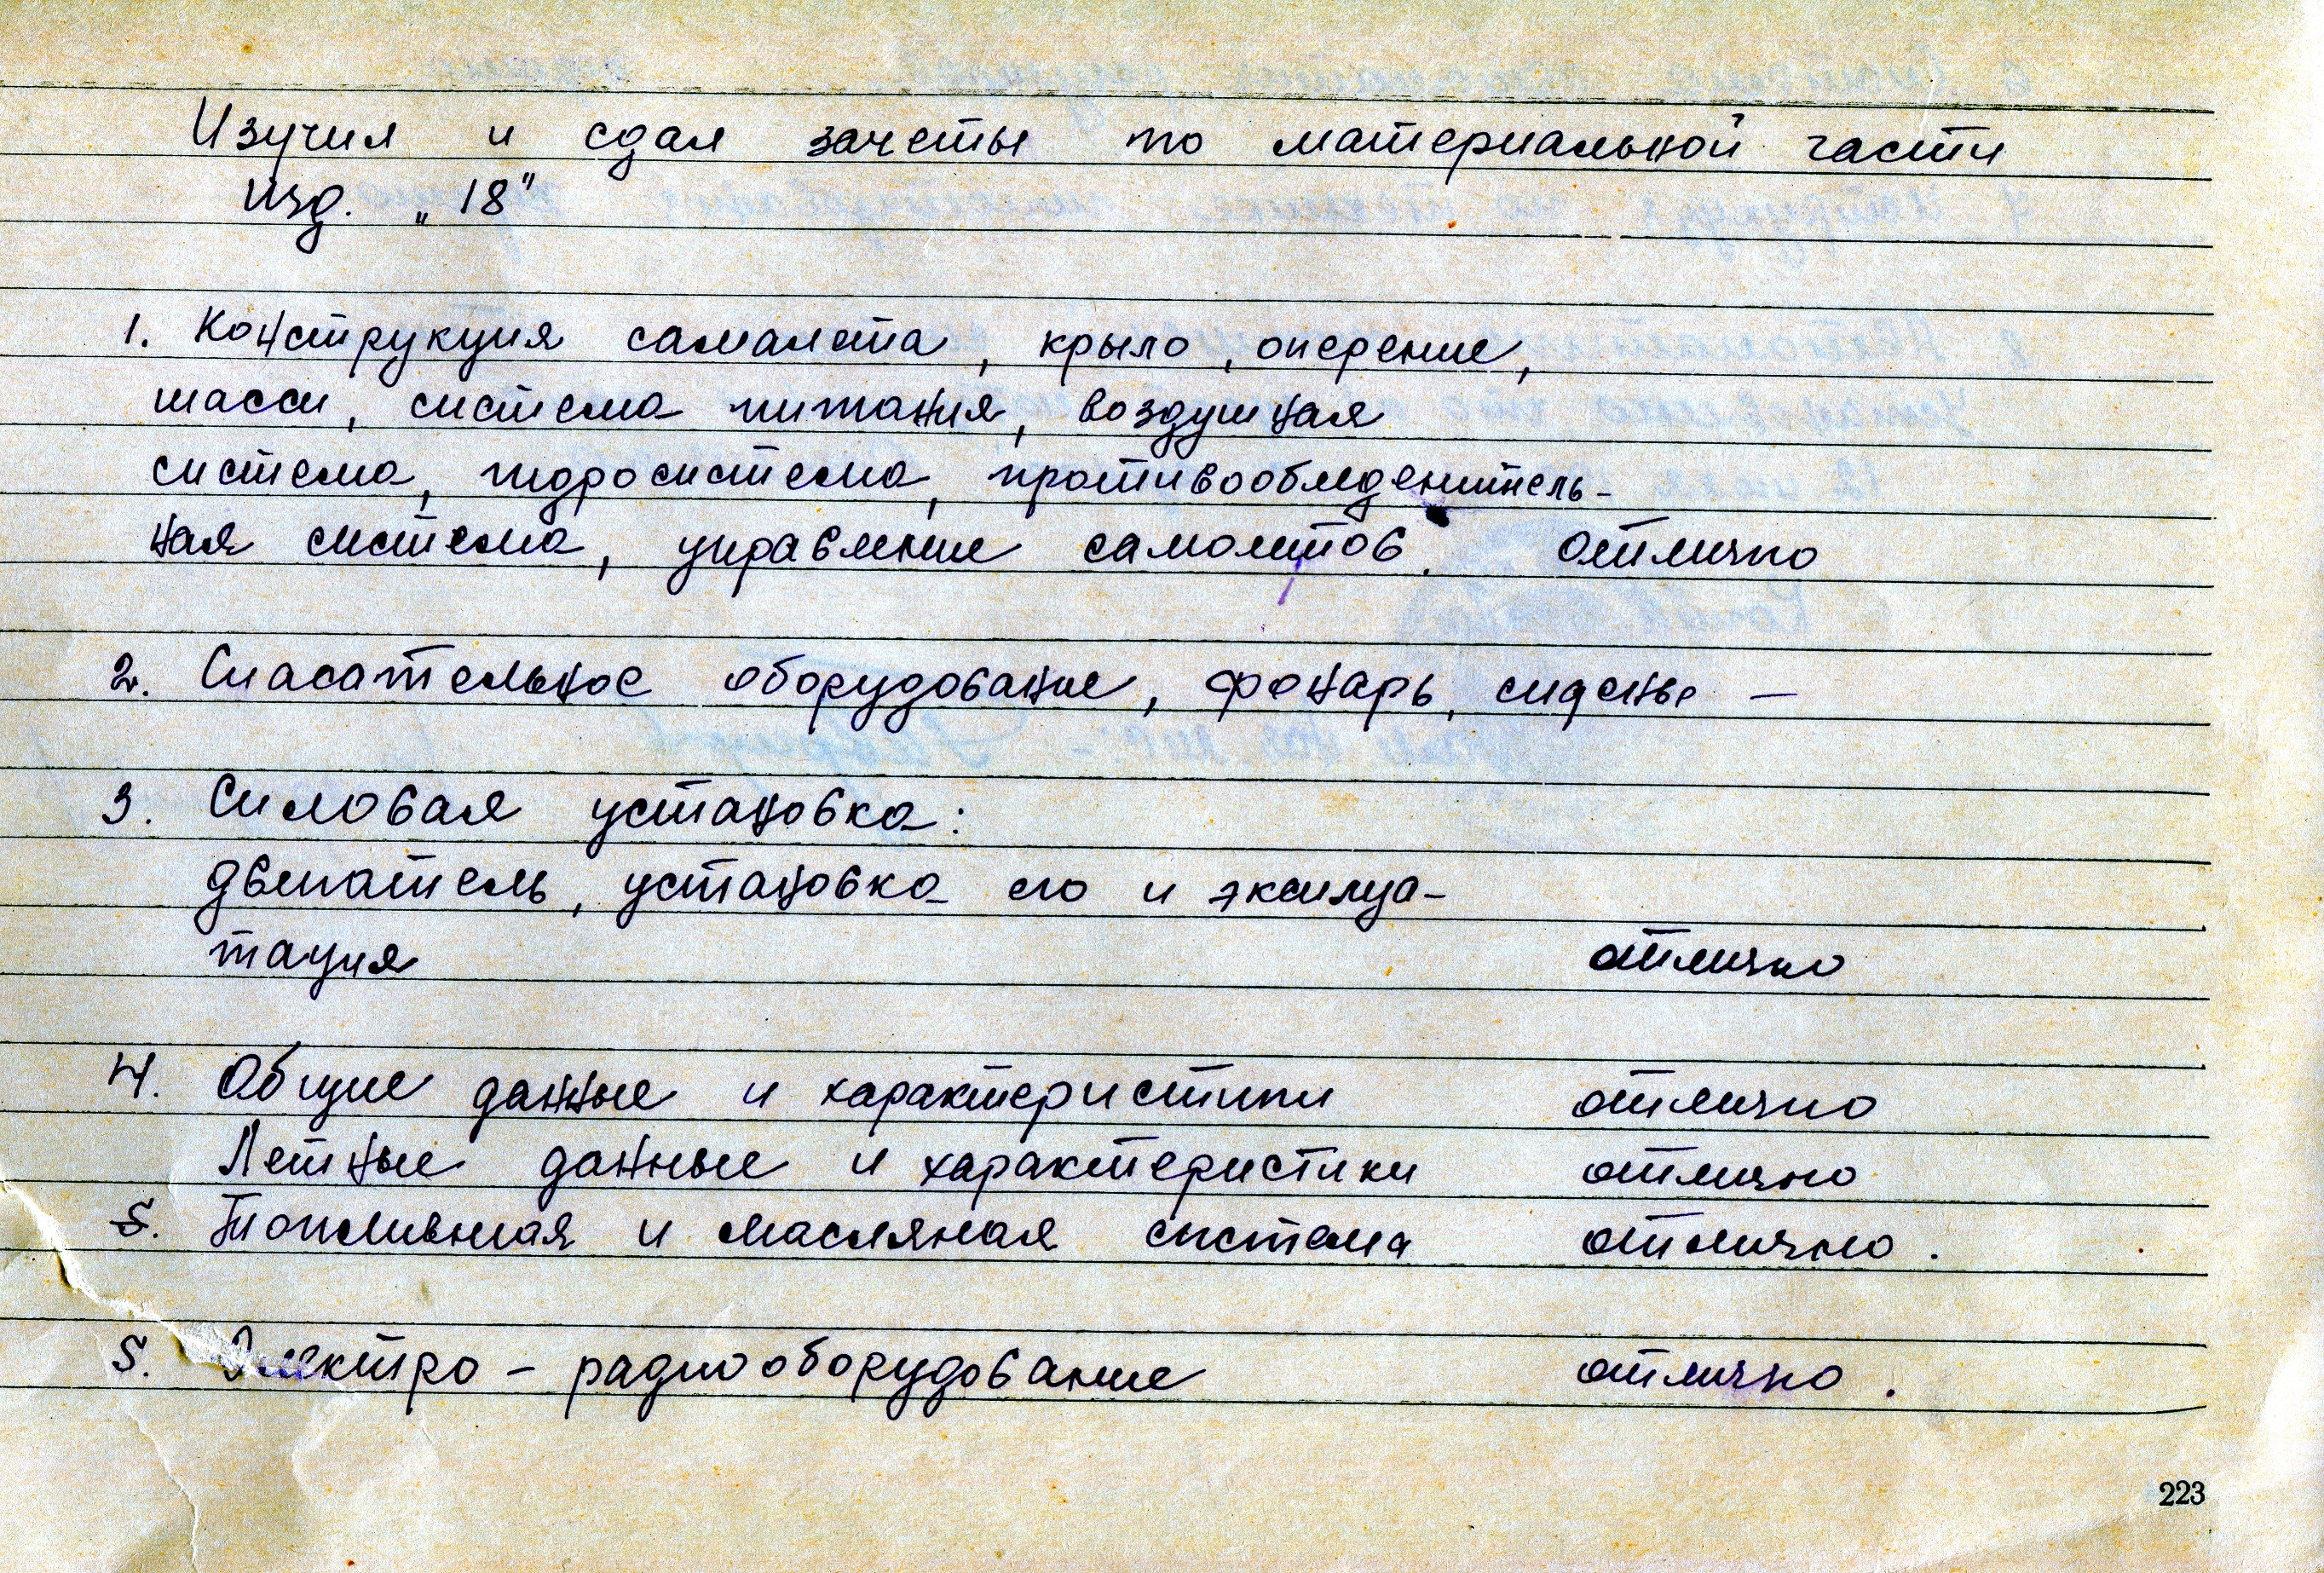 Изучил и сдал зачеты по материальной части
изд. „18"
1. Конструкция самолета, крыло, оперение,
шасси, система питания, воздушная
система, гидросистема, противообледенитель-
ная система, управление самолетов. отлично
2. Спасательное оборудование, фонарь, сиденье —
3. Силовая установка:
двигатель, установка его и эксплуа-
тация отлично
4. Общие данные и характеристики отлично
Летные данные и характеристики отлично
5. Топливная и масляная система отлично.
5. Электро - радиооборудование отлично.
223